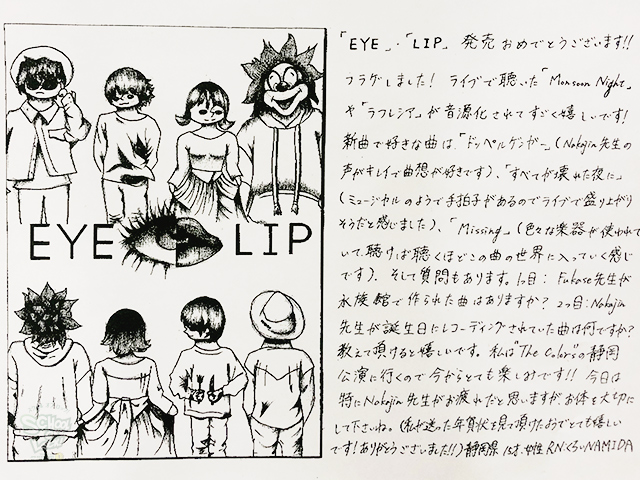 EYE LIP
「EYE」・「LIP」 発売 おめでとうございます!!
フラゲしました! ライブで聴いた「Monsoon Night」
や「ラフレシア」が音源化されてすごく嬉しいです!
新曲で好きな曲は、「ドッペルゲンガー」(Nakajin先生の
声がキレイで曲想が好きです)、「すべてが壊れた夜に」
(ミュージカルのようで手拍子があるのでライブで盛り上がり
そうだと感じました)、「Missing」(色々な楽器が使われて
いて、聴けば聴くほどこの曲の世界に入っていく感じ
です)。そして質問もあります。1つ目: Fukase先生が
水族館で作られた曲はありますか? 2つ目: Nakajin
先生が誕生日にレコーディングされていた曲は何ですか?
教えて頂けると嬉しいです。私は"The Colors"の静岡
公演に行くので今からとても楽しみです!! 今日は
特にNakajin先生がお疲れだと思いますが、お体を大切に
して下さいね。(私が送った年賀状を見て頂けたようでとても嬉しい
です!ありがとうございました!!) 静岡県 15才 女性 RN くらいNAMIDA